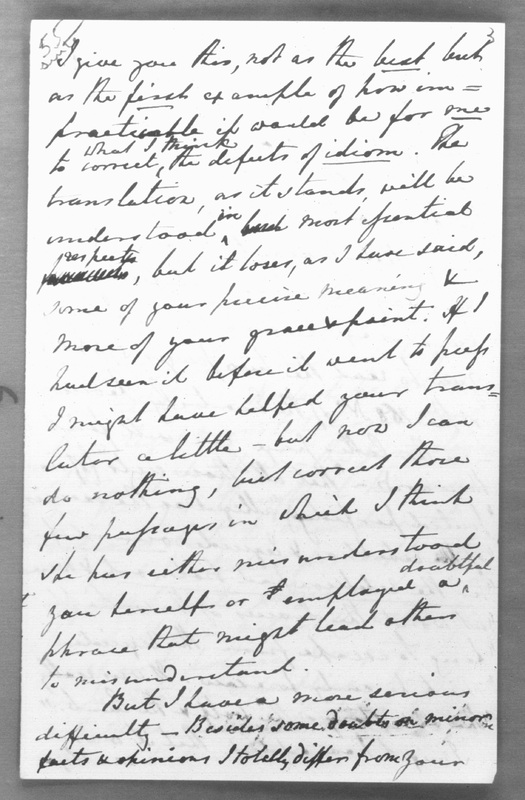 3
I give you this, not as the best but
as the first example of how im=
practicable it would be for me
to correct, what I think the defects of idiom. The
translation, as it stands, will be
understood in most essential
respects, but it loses, as I have said,
some of your precise meaning &
more of your grace & point. If I
had seen it before it went to press
I might have helped your trans=
lator a little – but now I can
do nothing, but correct those
few passages in which I think
she has either misunderstood
you herself or employed a doubtful
phrase that might lead others
to misunderstand.
But I have a more serious
difficulty – Besides some doubts on minor
facts & opinions I totally differ from your